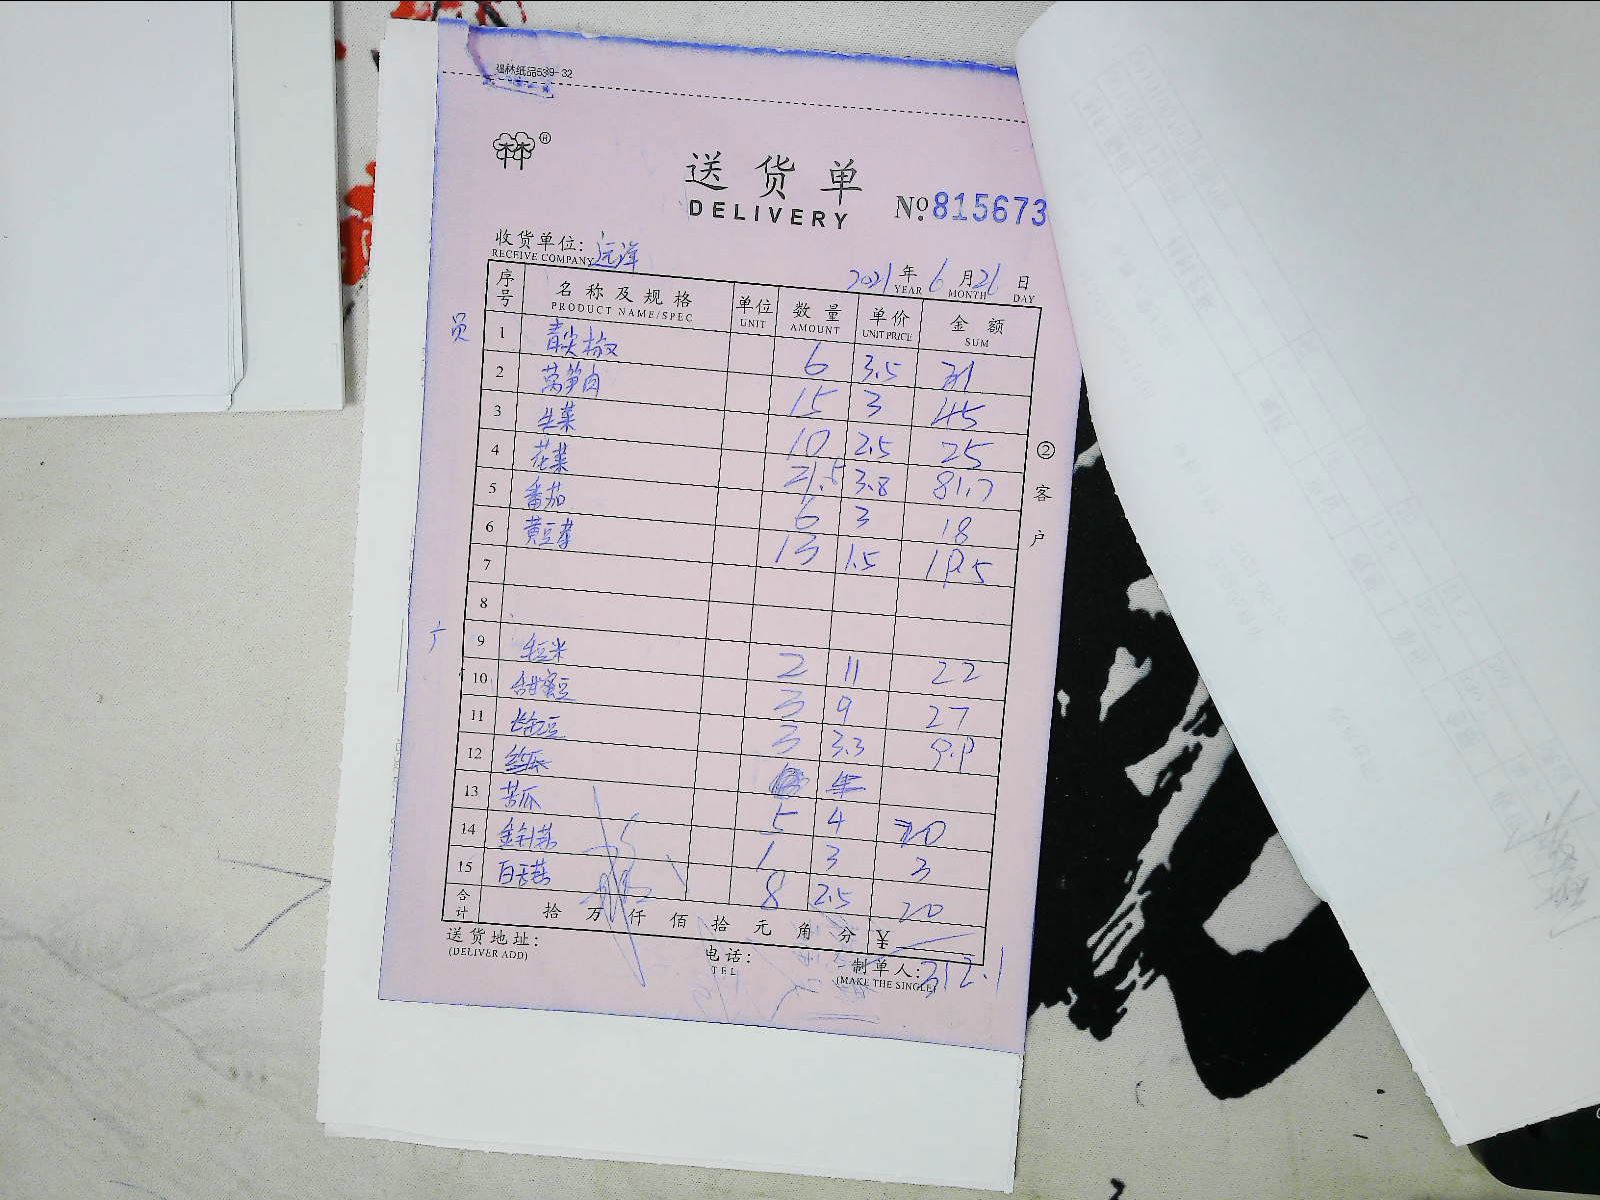 福林纸品539-32
送货单
DELIVERY
No.815673
收货单位：远洋
RECEIVE COMPANY
2021年6月26日
YEAR MONTH DAY
序号 名称及规格 单位 数量 单价 金额
PRODUCT NAME/SPEC UNIT AMOUNT UNIT PRICE SUM
员
1 青尖椒 6 3.5 21
2 莴笋肉 15 3 45
3 生菜 10 2.5 25
4 花菜 21.5 3.8 81.7
5 番茄 6 3 18
6 黄豆芽 13 1.5 19.5
7
8
广
9 粒米 2 11 22
10 甜蜜豆 3 9 27
11 长豇豆 3 3.3 9.9
12 丝瓜
13 苦瓜 5 4 20
14 金针菇 1 3 3
15 白玉菇 8 2.5 20
合计 拾 万 仟 佰 拾 元 角 分 ¥
312.1
送货地址：
(DELIVER ADD)
电话：
TEL
制单人：
(MAKE THE SINGLE)
②客户